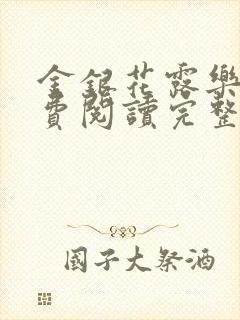 金銀花露樂
費閱讀完整
國子大祭酒